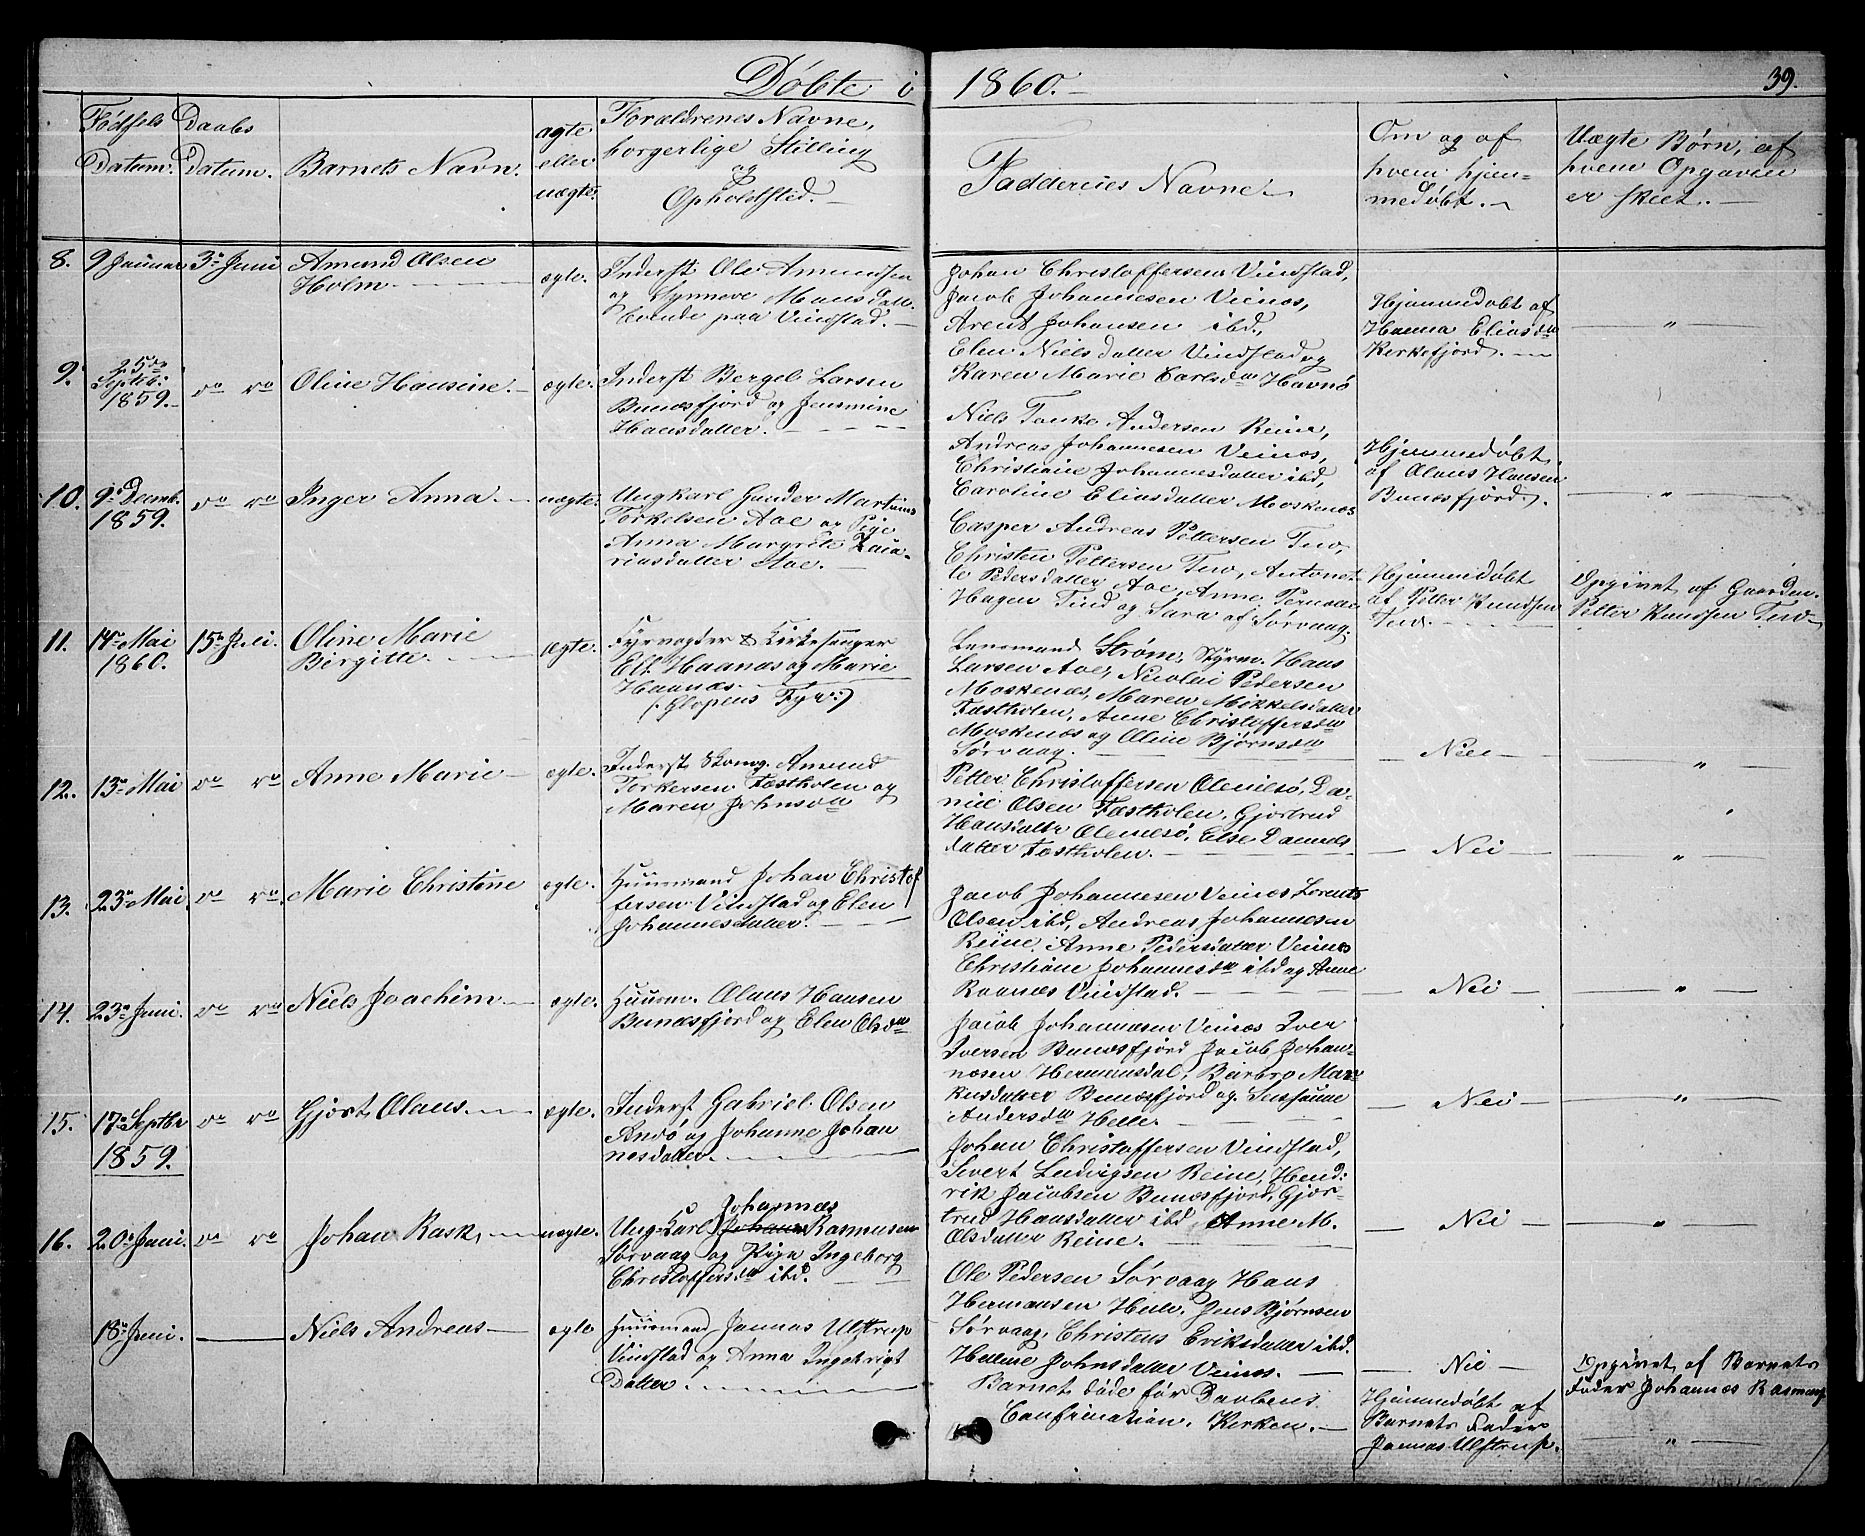 Döbte i 1860.
39.
Födsels Datum.
Daabs Datum.
Barnets Navn.
ægte eller uægte.
Forældrenes Navne, borgerlige Stilling og Opholdsted.
Faddernes Navne.
Om og af hvem hjem- medöbt.
Uægte Börn, af hvem Opgaven er skeet.
8. 9 Januar 3die Juni Amund Olsen Holm ægte.
Inderst Ole Amundsen
og Synneve Mansdatt.
boende paa Vindstad.
Johan Christoffersen Vindstad,
Jacob Johannesen Veines,
Arent Johansen ibd,
Elen Nielsdatter Vindstad og
Karen Marie Carlsdtr Havnö
Hjemmedöbt af
Hanna Eliasdtr
Kirkefjord.
"
9. 25de Septb: 1859. do do Oline Hansine. ægte.
Inderst Bergel Larsen
Bunæsfjord og Jensmine
Hansdatter.
Niels Tanke Andersen Reine,
Andreas Johannesen Veines,
Christiane Johannesdatter ibd,
Caroline Eliasdatter Moskenæs
Hjemmedöbt
af Olaus Hansen
Bunæsfjord.
"
10. 9de Decmb. 1859. do do Inger Anna. uægte.
Ungkarl Gunder Martinus
Torkelsen Aae og Pige
Anna Margrete Zaca-
riasdatter Aae.
Casper Andreas Pettersen Tind,
Christen Pettersen Tind, Antonet-
te Pedersdatter Aae, Anne Pernille
Hagen Tind og Sara af Sörvaag.
Hjemmedöbt
af Petter Knudsen
Tind.
Opgivet af Gaardm.
Petter Knudsen Tind
11. 14de Mai 1860. 15de Juli. Oline Marie Birgitte. ægte.
Fyrvogter & Kirkesanger
Ell. Haanæs og Marie
Haanæs.
(: Glopens Fyr :)
Lensmand Ström, Styrm. Hans
Larsen Aae, Nicolai Pedersen
Moskenæs, Maren Mikkelsdatter
Fastholen, Anne Christoffersdtr
Moskenæs og Oline Björnsdtr
Sörvaag.
Nei
"
12. 13de Mai do do Anne Marie ægte.
Inderst Skomg. Amund
Torkersen Fastholen og
Maren Johnsdtr
Petter Christoffersen Olenilsö, Da-
niel Olsen Fastholen, Gjörtrud
Hansdattr Olenilsö, Else Daniels
datter Fastholen.
Nei
"
13. 23de Mai do do Marie Christine ægte.
Huusmand Johan Christof
fersen Vindstad og Elen
Johannesdatter.
Jacob Johannesen Veinæs Lorents
Olsen ibd, Andreas Johannesen
Reine, Anne Pedersdatter Veines
Christiane Johannesdtr ibd og Anne
Raanæs Vindstad.
Nei
"
14. 23de Juni. do do Niels Joachim ægte.
Huusm. Olaus Hansen
Bunæsfjord og Elen Olsdtr
Jacob Johannesen Veinæs Iver
Iversen Bunæsfjord Jacob Johan-
nesen Hermansdal, Barbro Mar-
kusdatter Bunæsfjord og
Andersdtr Helle.
Nei
"
15. 17de Septbr 1859. do do Gjört Olaus. ægte.
Inderst Gabriel Olsen
Andö og Johanne Johan
nesdatter.
Johan Christoffersen Vindstad,
Sivert Ludvigsen Reine, Hend:
rik Jacobsen Bunæsfjord, Gjör-
trud Hansdatter ibd Anne M.
Olsdatter Reine.
Nei
"
16. 20de Juni. do do Johan Rask, uægte.
Johannes
Ung-Karl Johan Rasmusen
Sörvaag og Pige Ingeborg
Christoffersdtr ibd.
Ole Pedersen Sörvaag Hans
Hermansen Helle, Jens Björnsen
Sörvaag, Christens Eriksdatter ibd.
Helline Johnsdatter Veines.
Nei
Opgivet af Barnets
Fader Johannes Rasmus
18de Juni. Niels Andreas ægte
Huusmand Jannas Ulstrup
Vindstad og Anna Ingebrigt
Datter.
Barnet döde för Daabens
Confirmation i Kirken.
Hjemmedöbt af
Barnets Fader
Jannas Ulstrup.
"